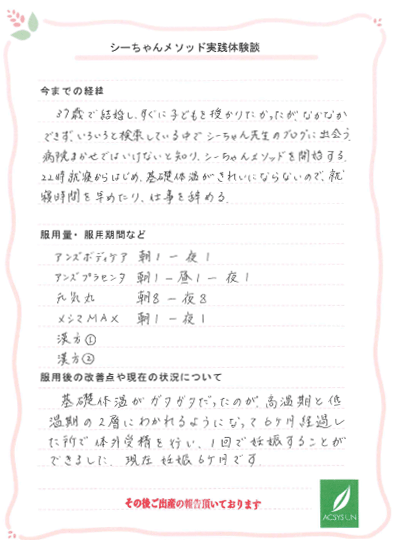 シーちゃんメソッド実践体験談
今までの経緯
37歳で結婚し、すぐに子どもを授かりたかったが、なかなか
できず、いろいろと検索している中でシーちゃん先生のブログに出会う
病院まかせではいけないと知り、シーちゃんメソッドを開始する。
22時就寝からはじめ、基礎体温がきれいにならないので、就
寝時間を早めたり、仕事を辞める。
服用量・服用期間など
アンズボディケア 朝1－夜1
アンズプラセンタ 朝1－昼1－夜1
元気丸 朝8－夜8
メシマMAX 朝1－夜1
漢方①
漢方②
服用後の改善点や現在の状況について
基礎体温がガタガタだったのが、高温期と低
温期の2層にわかれるようになって6ケ月経過し
た所で体外受精を行い、1回で妊娠することが
できました。現在妊娠6ケ月です
その後ご出産の報告頂いております
ACSYSUN